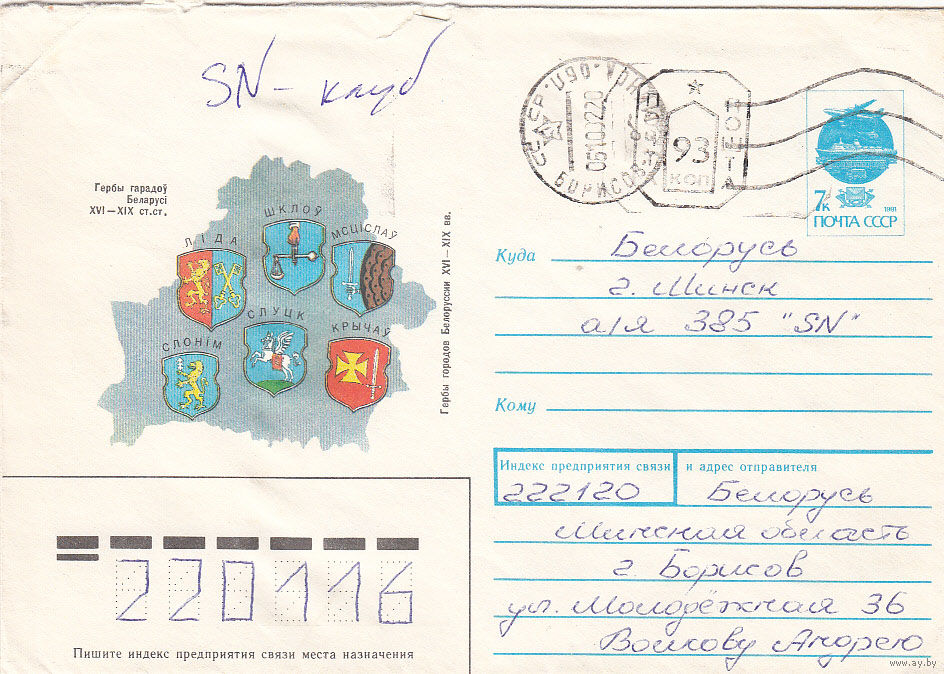 SN - клуб
Гербы гарадоў
Беларусі
XVI—XIX ст.ст.
ЛІДА
ШКЛОЎ
МСЦІСЛАЎ
СЛОНІМ
СЛУЦК
КРЫЧАЎ
Гербы городов Белоруссии XVI—XIX вв.
СССР
БОРИСОВ
93
КОП
ПОШТА
7к
1991
ПОЧТА СССР
Куда Белорусь
г. Минск
а/я 385 "SN"
Кому
Индекс предприятия связи и адрес отправителя
222120 Белорусь
Минская область
г. Борисов
ул. Молодёжная 36
Волкову Андрею
220116
Пишите индекс предприятия связи места назначения
www.ay.by